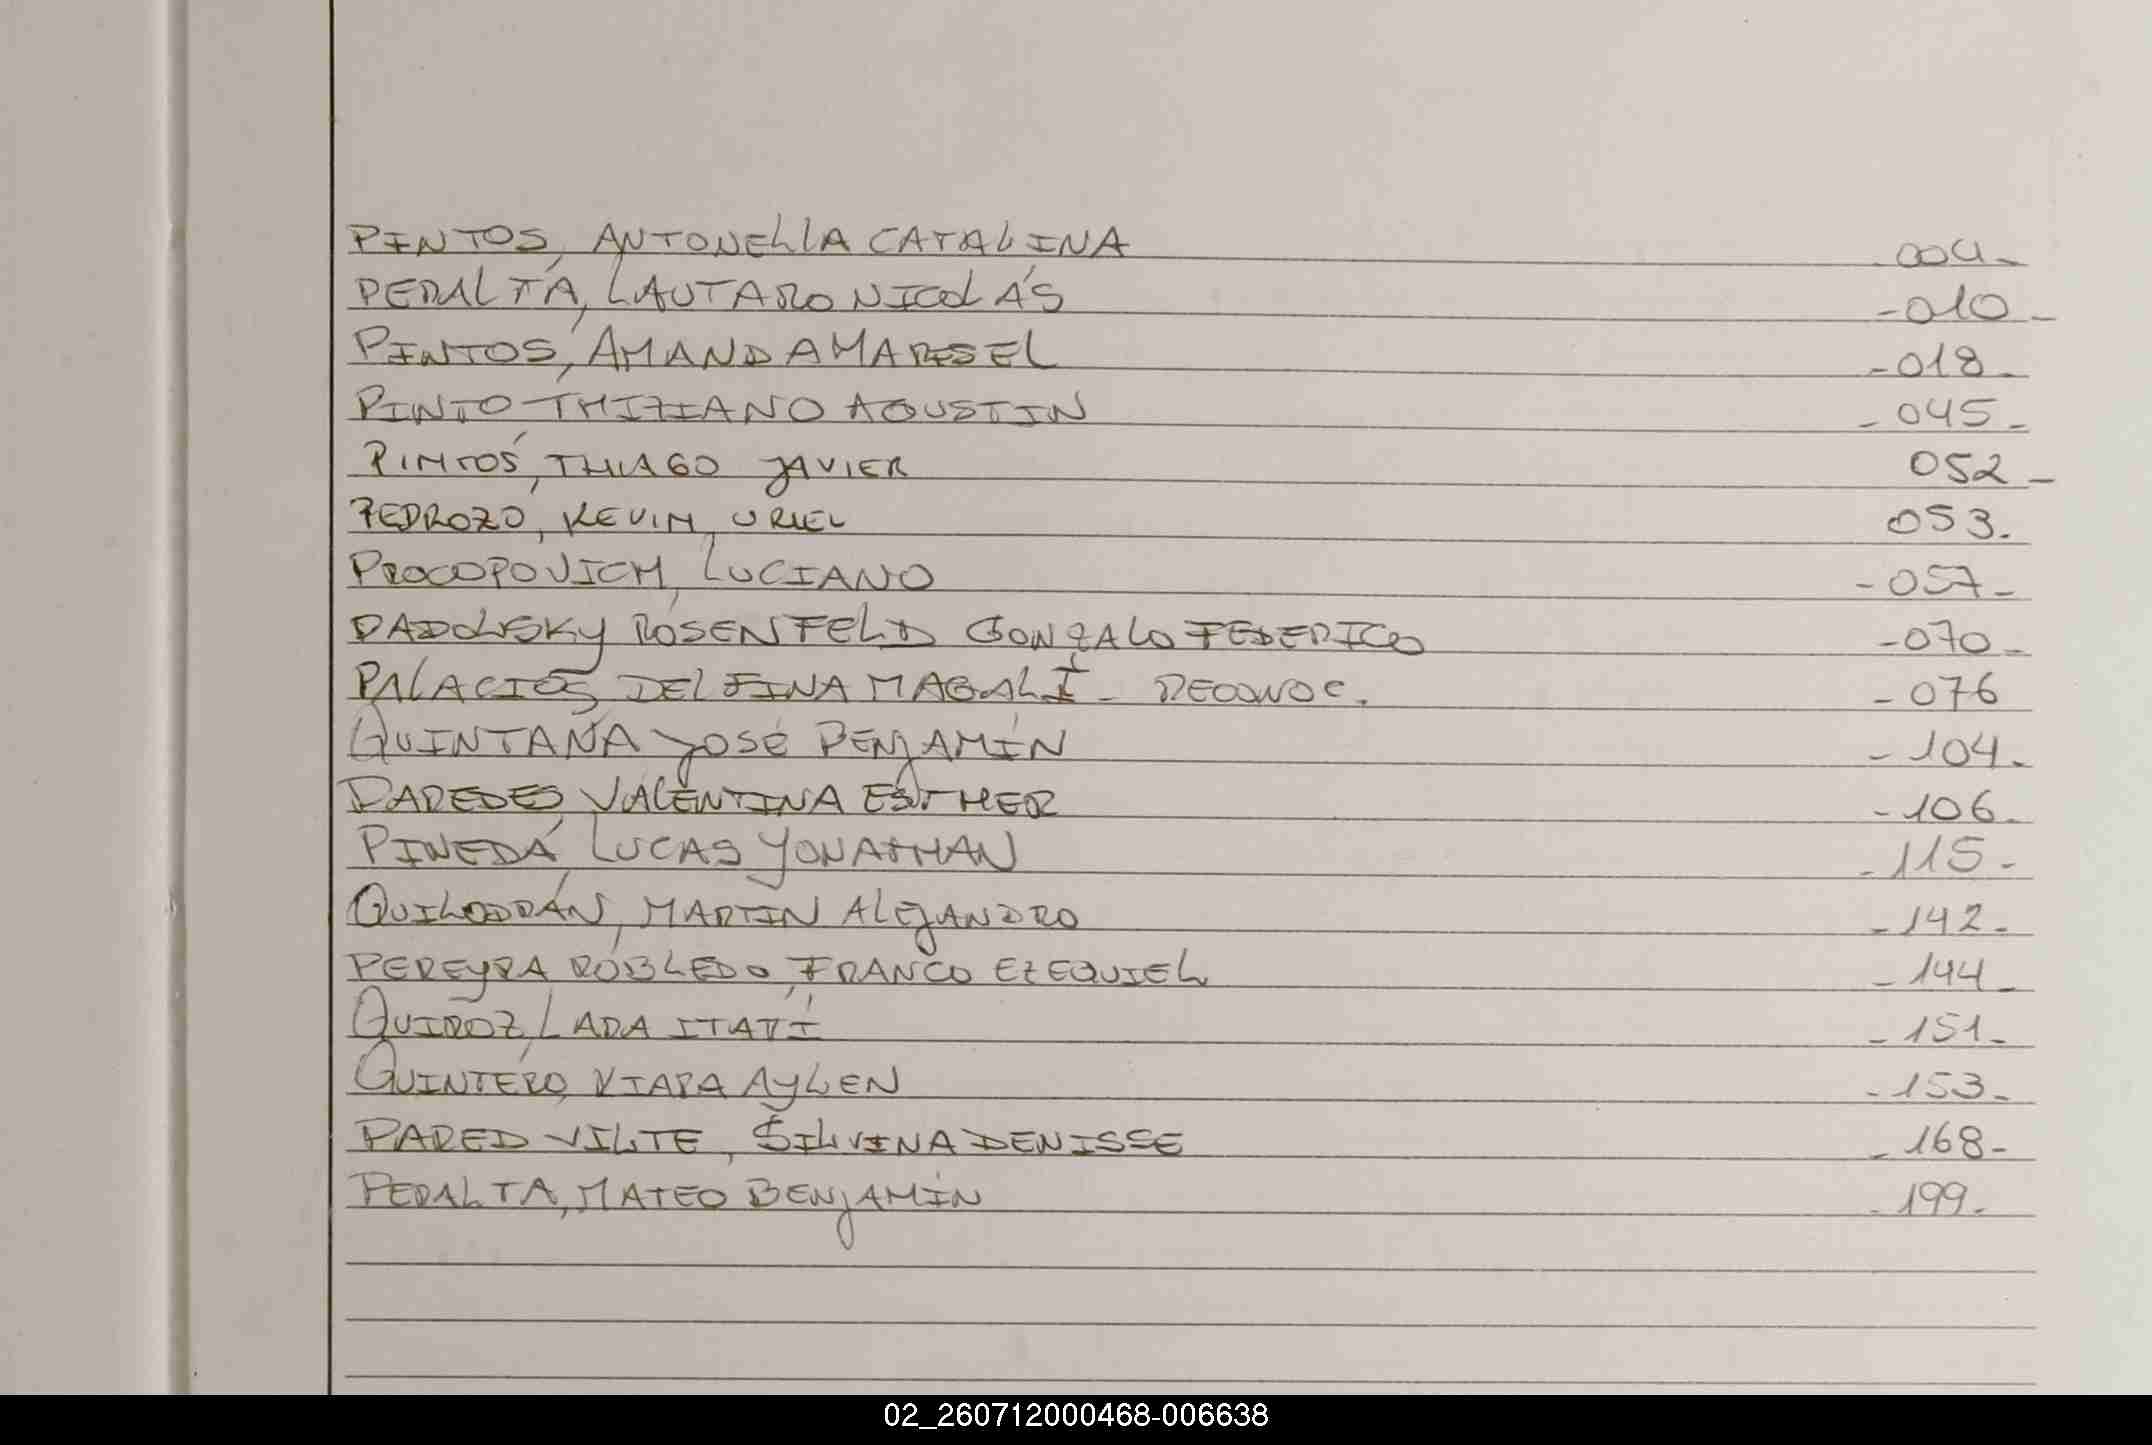 PINTOS, ANTONELLA CATALINA 004-
PERALTA, LAUTARO NICOLÁS -010-
PINTOS, AMANDA MARISEL -018-
PINTO THIZIANO AGUSTIN -045-
PINTOS, THIAGO JAVIER 052-
PEDROZO, KEVIN URIEL 053.
PROCOPOVICH, LUCIANO -057-
PADOLSKY ROSENFELD GONZALO FEDERICO -070-
PALACIOS, DELFINA MAGALÍ - RECONOC. -076
QUINTANA JOSÉ BENJAMÍN -104-
PAREDES, VALENTINA ESTHER -106-
PINEDA, LUCAS YONATHAN -115-
QUILODRÁN, MARTIN ALEJANDRO -142-
PEREYRA ROBLEDO, FRANCO EZEQUIEL -144-
QUIROZ, LARA ITATÍ -151-
QUINTERO, KIARA AYLEN -153-
PARED VILTE, SILVINA DENISSE -168-
PERALTA, MATEO BENJAMÍN -199-
02_260712000468-006638